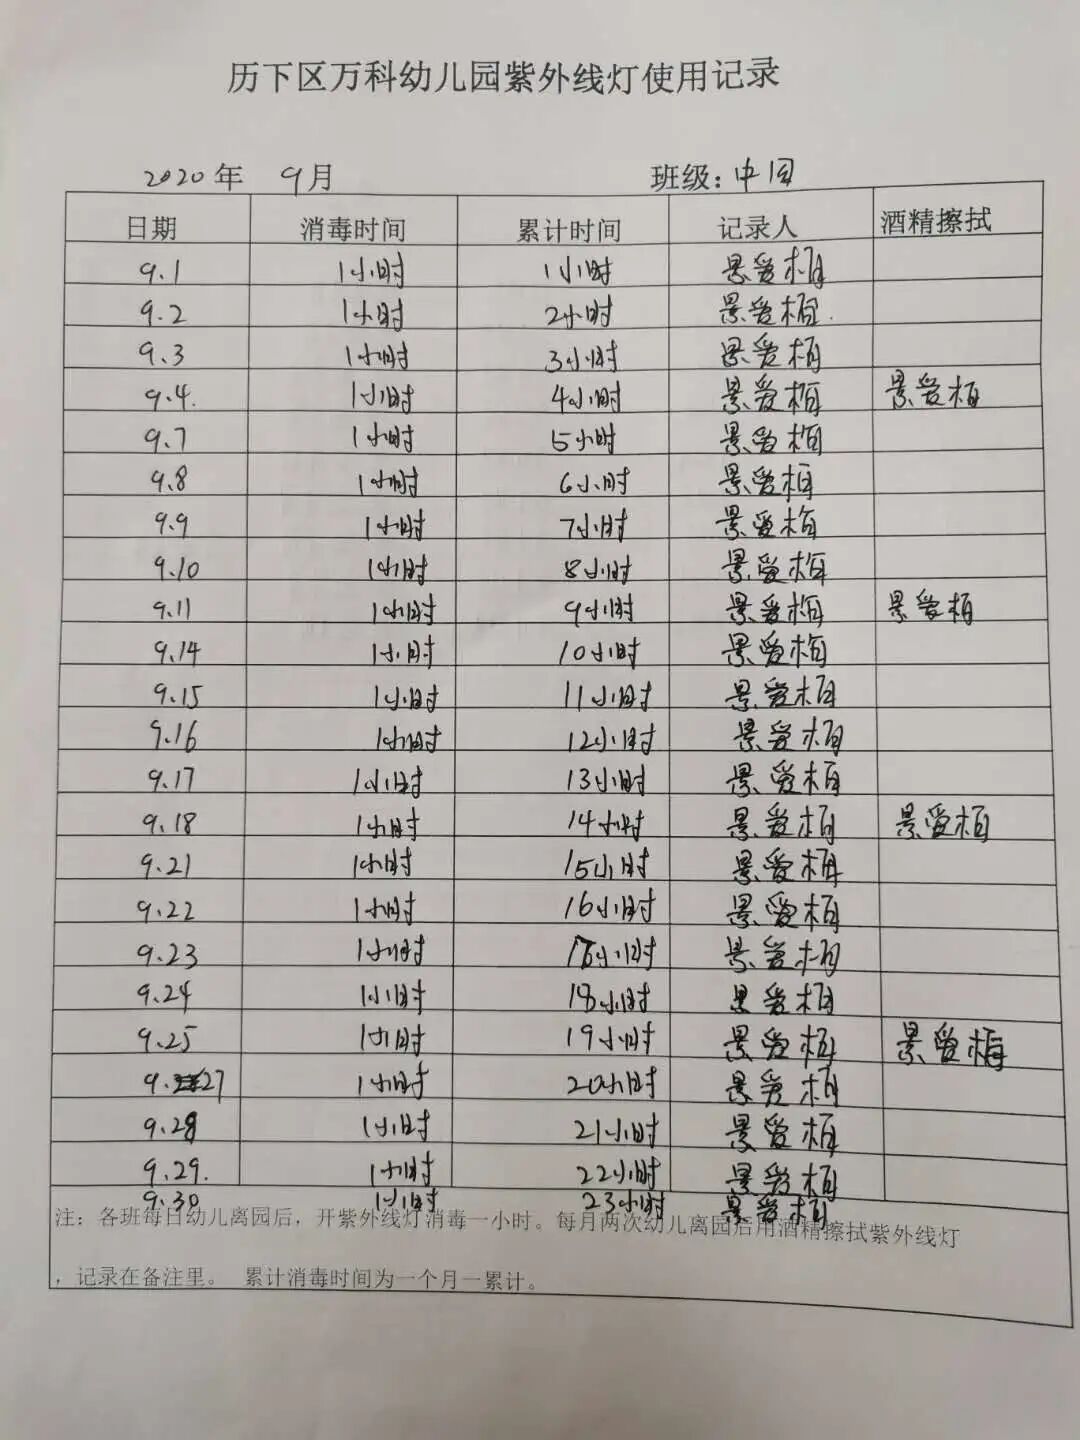 历下区万科幼儿园紫外线灯使用记录
2020年 9月 班级：中一
日期 消毒时间 累计时间 记录人 酒精擦拭
9.1 1小时 1小时 景爱梅
9.2 1小时 2小时 景爱梅
9.3 1小时 3小时 景爱梅
9.4. 1小时 4小时 景爱梅 景爱梅
9.7 1小时 5小时 景爱梅
9.8 1小时 6小时 景爱梅
9.9 1小时 7小时 景爱梅
9.10 1小时 8小时 景爱梅
9.11 1小时 9小时 景爱梅 景爱梅
9.14 1小时 10小时 景爱梅
9.15 1小时 11小时 景爱梅
9.16 1小时 12小时 景爱梅
9.17 1小时 13小时 景爱梅
9.18 1小时 14小时 景爱梅 景爱梅
9.21 1小时 15小时 景爱梅
9.22 1小时 16小时 景爱梅
9.23 1小时 17小时 景爱梅
9.24 1小时 18小时 景爱梅
9.25 1小时 19小时 景爱梅 景爱梅
9.27 1小时 20小时 景爱梅
9.28 1小时 21小时 景爱梅
9.29. 1小时 22小时 景爱梅
9.30 1小时 23小时 景爱梅
注：各班每日幼儿离园后，开紫外线灯消毒一小时。每月两次幼儿离园后用酒精擦拭紫外线灯
，记录在备注里。 累计消毒时间为一个月一累计。